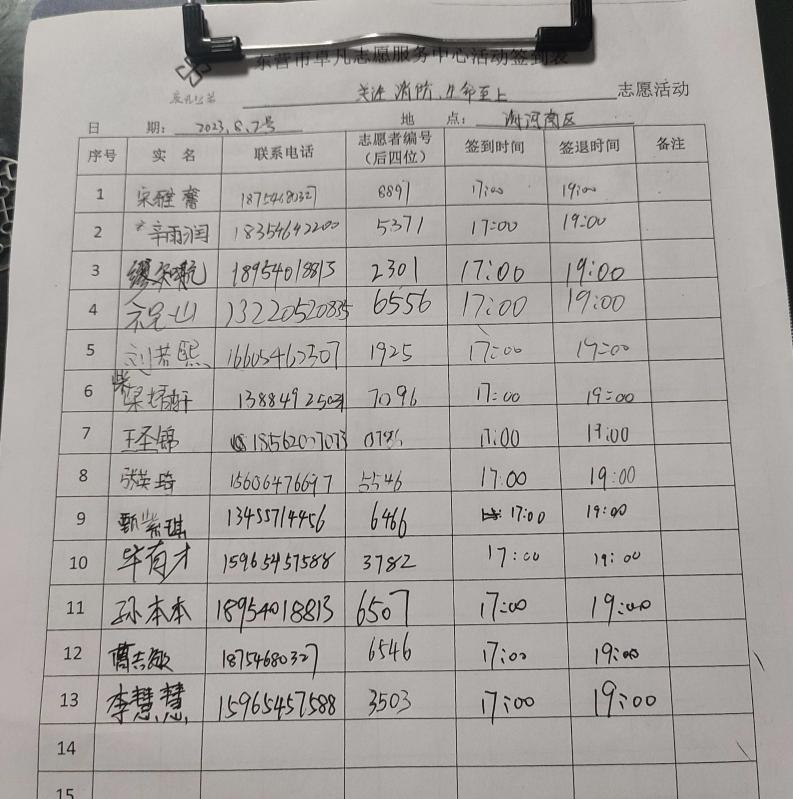 东营市卓凡志愿服务中心活动签到表
关注消防、生命至上 志愿活动
日 期: 2023.8.7号 地 点: 海河南区
序号 实 名 联系电话 志愿者编号(后四位) 签到时间 签退时间 备注
1 宋雅馨 18754680327 8897 17:00 19:00
2 *辛雨润 18354642200 5371 17:00 19:00
3 缪知航 18954018813 2301 17:00 19:00
4 祝一山 13220520835 6556 17:00 19:00
5 刘若熙 16605462307 1925 17:00 19:00
6 柴梁 轩 13884925031 7096 17:00 19:00
7 王圣锦 18562007073 0786 17:00 19:00
8 张英琦 15606476697 5546 17:00 19:00
9 甄紫琪 13455714456 6466 17:00 19:00
10 毕有才 15965457588 3782 17:00 19:00
11 孙本本 18954018813 6507 17:00 19:00
12 曹志敏 18754680327 6546 17:00 19:00
13 李慧慧 15965457588 3503 17:00 19:00
14
15